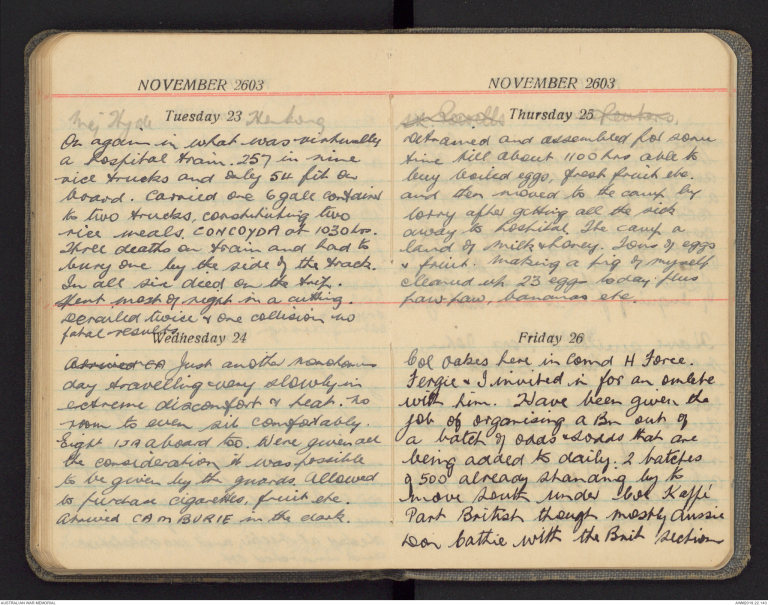 NOVEMBER 2603
Maj Hyde Tuesday 23
On again in what was virtually
a hospital train. 257 in nine
rice trucks and only 54 fit on
board. Carried one 6 gall container
to two trucks, constituting two
rice meals. CONCOYDA at 1030 hrs.
Three deaths on train and had to
bury one by the side of the track.
In all six died on the trip.
Spent most of night in a cutting.
Derailed twice & one collision no
fatal results.
Wednesday 24
Arrived CA Just another
day travelling very slowly in
extreme discomfort & heat. No
room to even sit comfortably.
Eight IJA aboard too. Were given all
the consideration it was possible
to be given by the guards. Allowed
to purchase cigarettes, fruit etc.
Arrived CAMBURIE in the dark.
NOVEMBER 2603
Thursday 25
Detrained and assembled for some
time till about 1100 hrs able to
buy boiled eggs, fresh fruit etc.
and then moved to the camp by
lorry after getting all the sick
away to hospital. The camp a
land of milk & honey. Tons of eggs
& fruit. Making a pig of myself
cleaned up 23 eggs today plus
paw paw, bananas etc.
Friday 26
Col Oakes here in Comd H Force.
Fergie & I invited in for an omlete
with him. Have been given the
job of organising a Bn out of
a batch of odds & sodds that are
being added to daily. 2 batches
of 500 already standing by to
move south under Col Kappé
Part British though mostly Aussie
Don Cathie with the Brit section
AUSTRALIAN WAR MEMORIAL